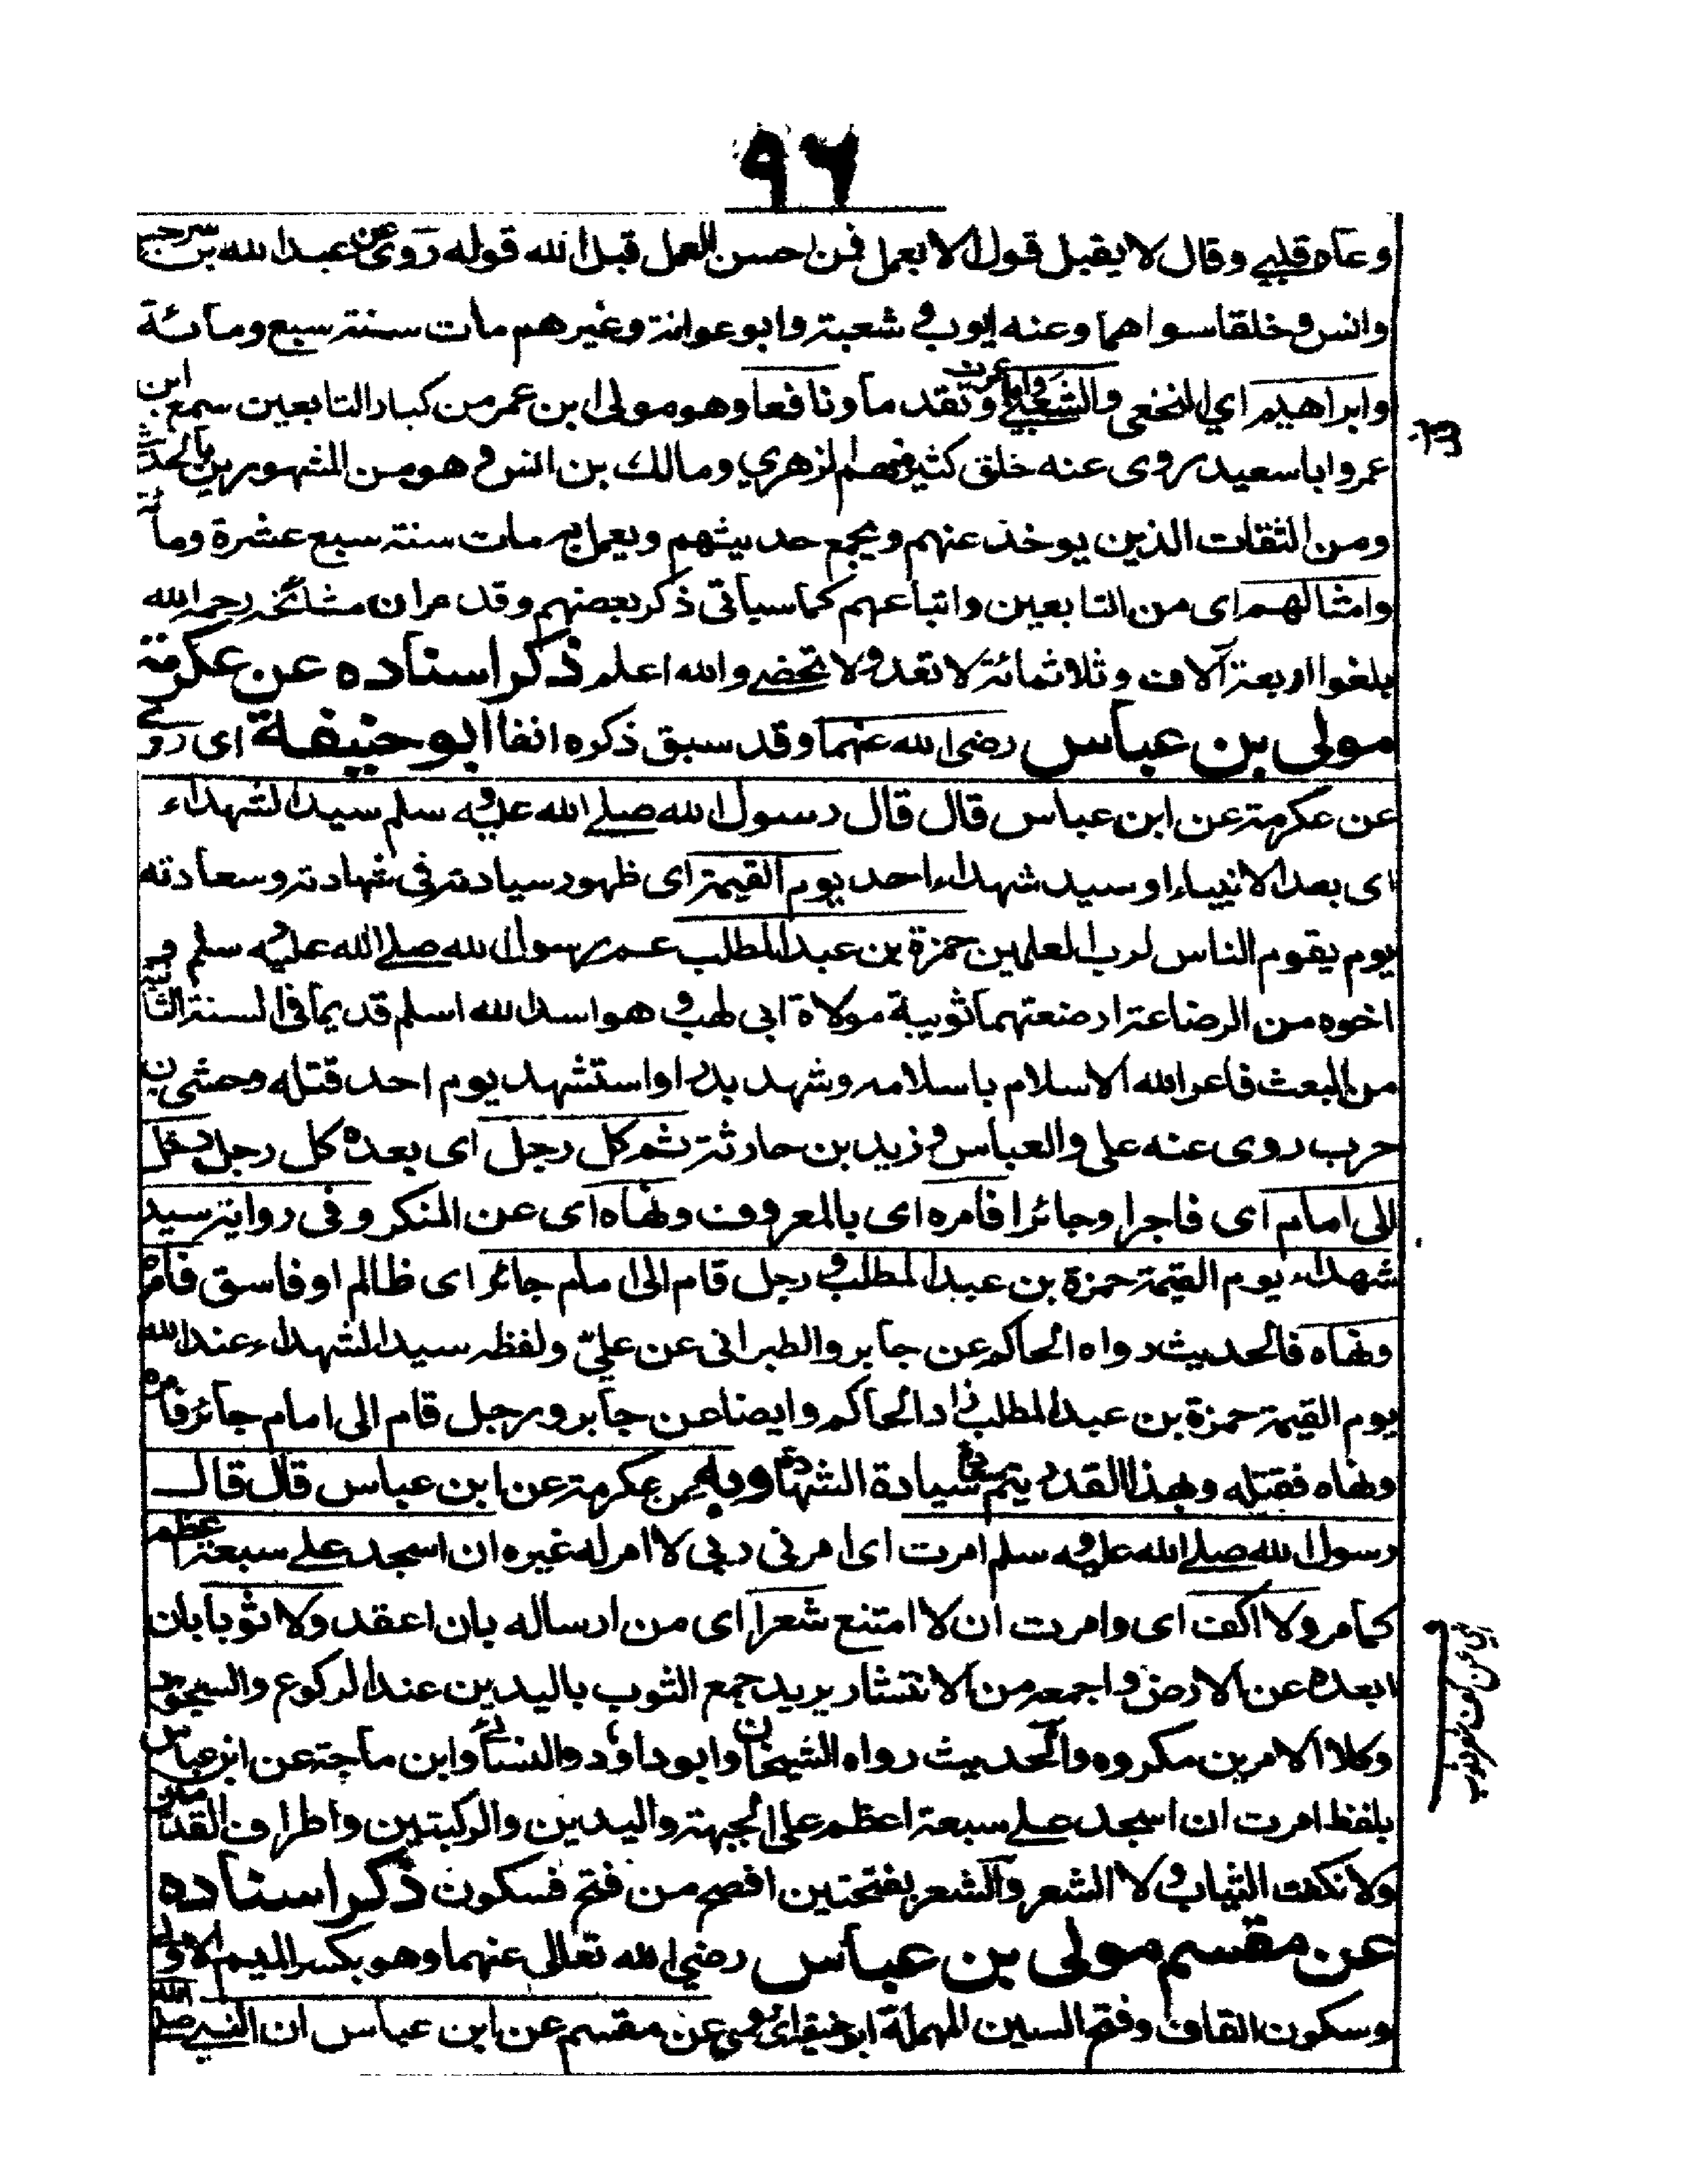 ٩٦
وعاه قلبي وقال لا يقبل قول الا بعمل فمن احسن العمل قبل الله قوله روى عن عبد الله بن سرجس
وانس وخلقا سواهما وعنه ايوب و شعبة وابو عوانة وغيرهم مات سنة سبع ومائة
وابراهيم اي النخعي والشعبي وتقدما ونافعا وهو مولى ابن عمر من كبار التابعين سمع ابن
عمر وابا سعيد روى عنه خلق كثير منهم الزهري ومالك بن انس و هو من المشهورين بالحديث
ومن الثقات الذين يوخذ عنهم ويجمع حديثهم ويعمل به مات سنة سبع عشرة ومائة
وامثالهم اى من التابعين واتباعهم كما سياتى ذكر بعضهم وقد مر ان مشائخه رحمه الله
بلغوا اربعة آلاف وثلاثمائة لا تعد ولا تحصى والله اعلم ذكر اسناده عن عكرمة
مولى بن عباس رضى الله عنهما وقد سبق ذكره انفا ابو حنيفة اى روى
عن عكرمة عن ابن عباس قال قال رسول الله صلى الله عليه و سلم سيد الشهداء
اى بعد الانبياء او سيد شهداء احد يوم القيمة اى ظهور سيادته فى شهادته وسعادته
يوم يقوم الناس لرب العلمين حمزة بن عبد المطلب عم رسول الله صلى الله عليه و سلم و
اخوه من الرضاعة ارضعتهما ثويبة مولاة ابى لهب و هو اسد الله اسلم قديما فى السنة الثانية
من البعث فاعز الله الاسلام باسلامه وشهد بدرا واستشهد يوم احد قتله وحشى بن
حرب روى عنه على والعباس و زيد بن حارثة ثم كل رجل اى بعده كل رجل دخل
الى امام اى فاجرا وجائرا فامره اى بالمعروف ونهاه اى عن المنكر وفى رواية سيد
شهداء يوم القيمة حمزة بن عبد المطلب و رجل قام الى امام جائر اى ظالم او فاسق فامره
ونهاه فالحديث رواه الحاكم عن جابر والطبرانى عن علىّ ولفظه سيد الشهداء عند الله
يوم القيمة حمزة بن عبد المطلب زاد الحاكم وايضا عن جابر ورجل قام الى امام جائر فامره
ونهاه فقتله وبهذا القدر يتم سيادة الشهادة وبه عن عكرمة عن ابن عباس قال قال
رسول الله صلى الله عليه و سلم امرت اى امرنى ربى لا امر له غيره ان اسجد على سبعة اعظم
كما مر ولا اكف اى وامرت ان لا امتنع شعرا اى من ارساله بان اعقد ولا ثوبا بان
ابعده عن الارض و اجمعه من الانتشار يريد جمع الثوب باليدين عند الركوع والسجود
وكلا الامرين مكروه والحديث رواه الشيخان وابو داود والنسائى وابن ماجة عن ابن عباس
بلفظ امرت ان اسجد على سبعة اعظم على الجبهة واليدين والركبتين واطراف القدمين
ولا نكفت الثياب و لا الشعر والشعر بفتحتين افصح من فتح فسكون ذكر اسناده
عن مقسم مولى بن عباس رضى الله تعالى عنهما وهو بكسر الميم الاولى
وسكون القاف وفتح السين المهملة ابو حنيفة اى روى عن مقسم عن ابن عباس ان النبى صلى الله